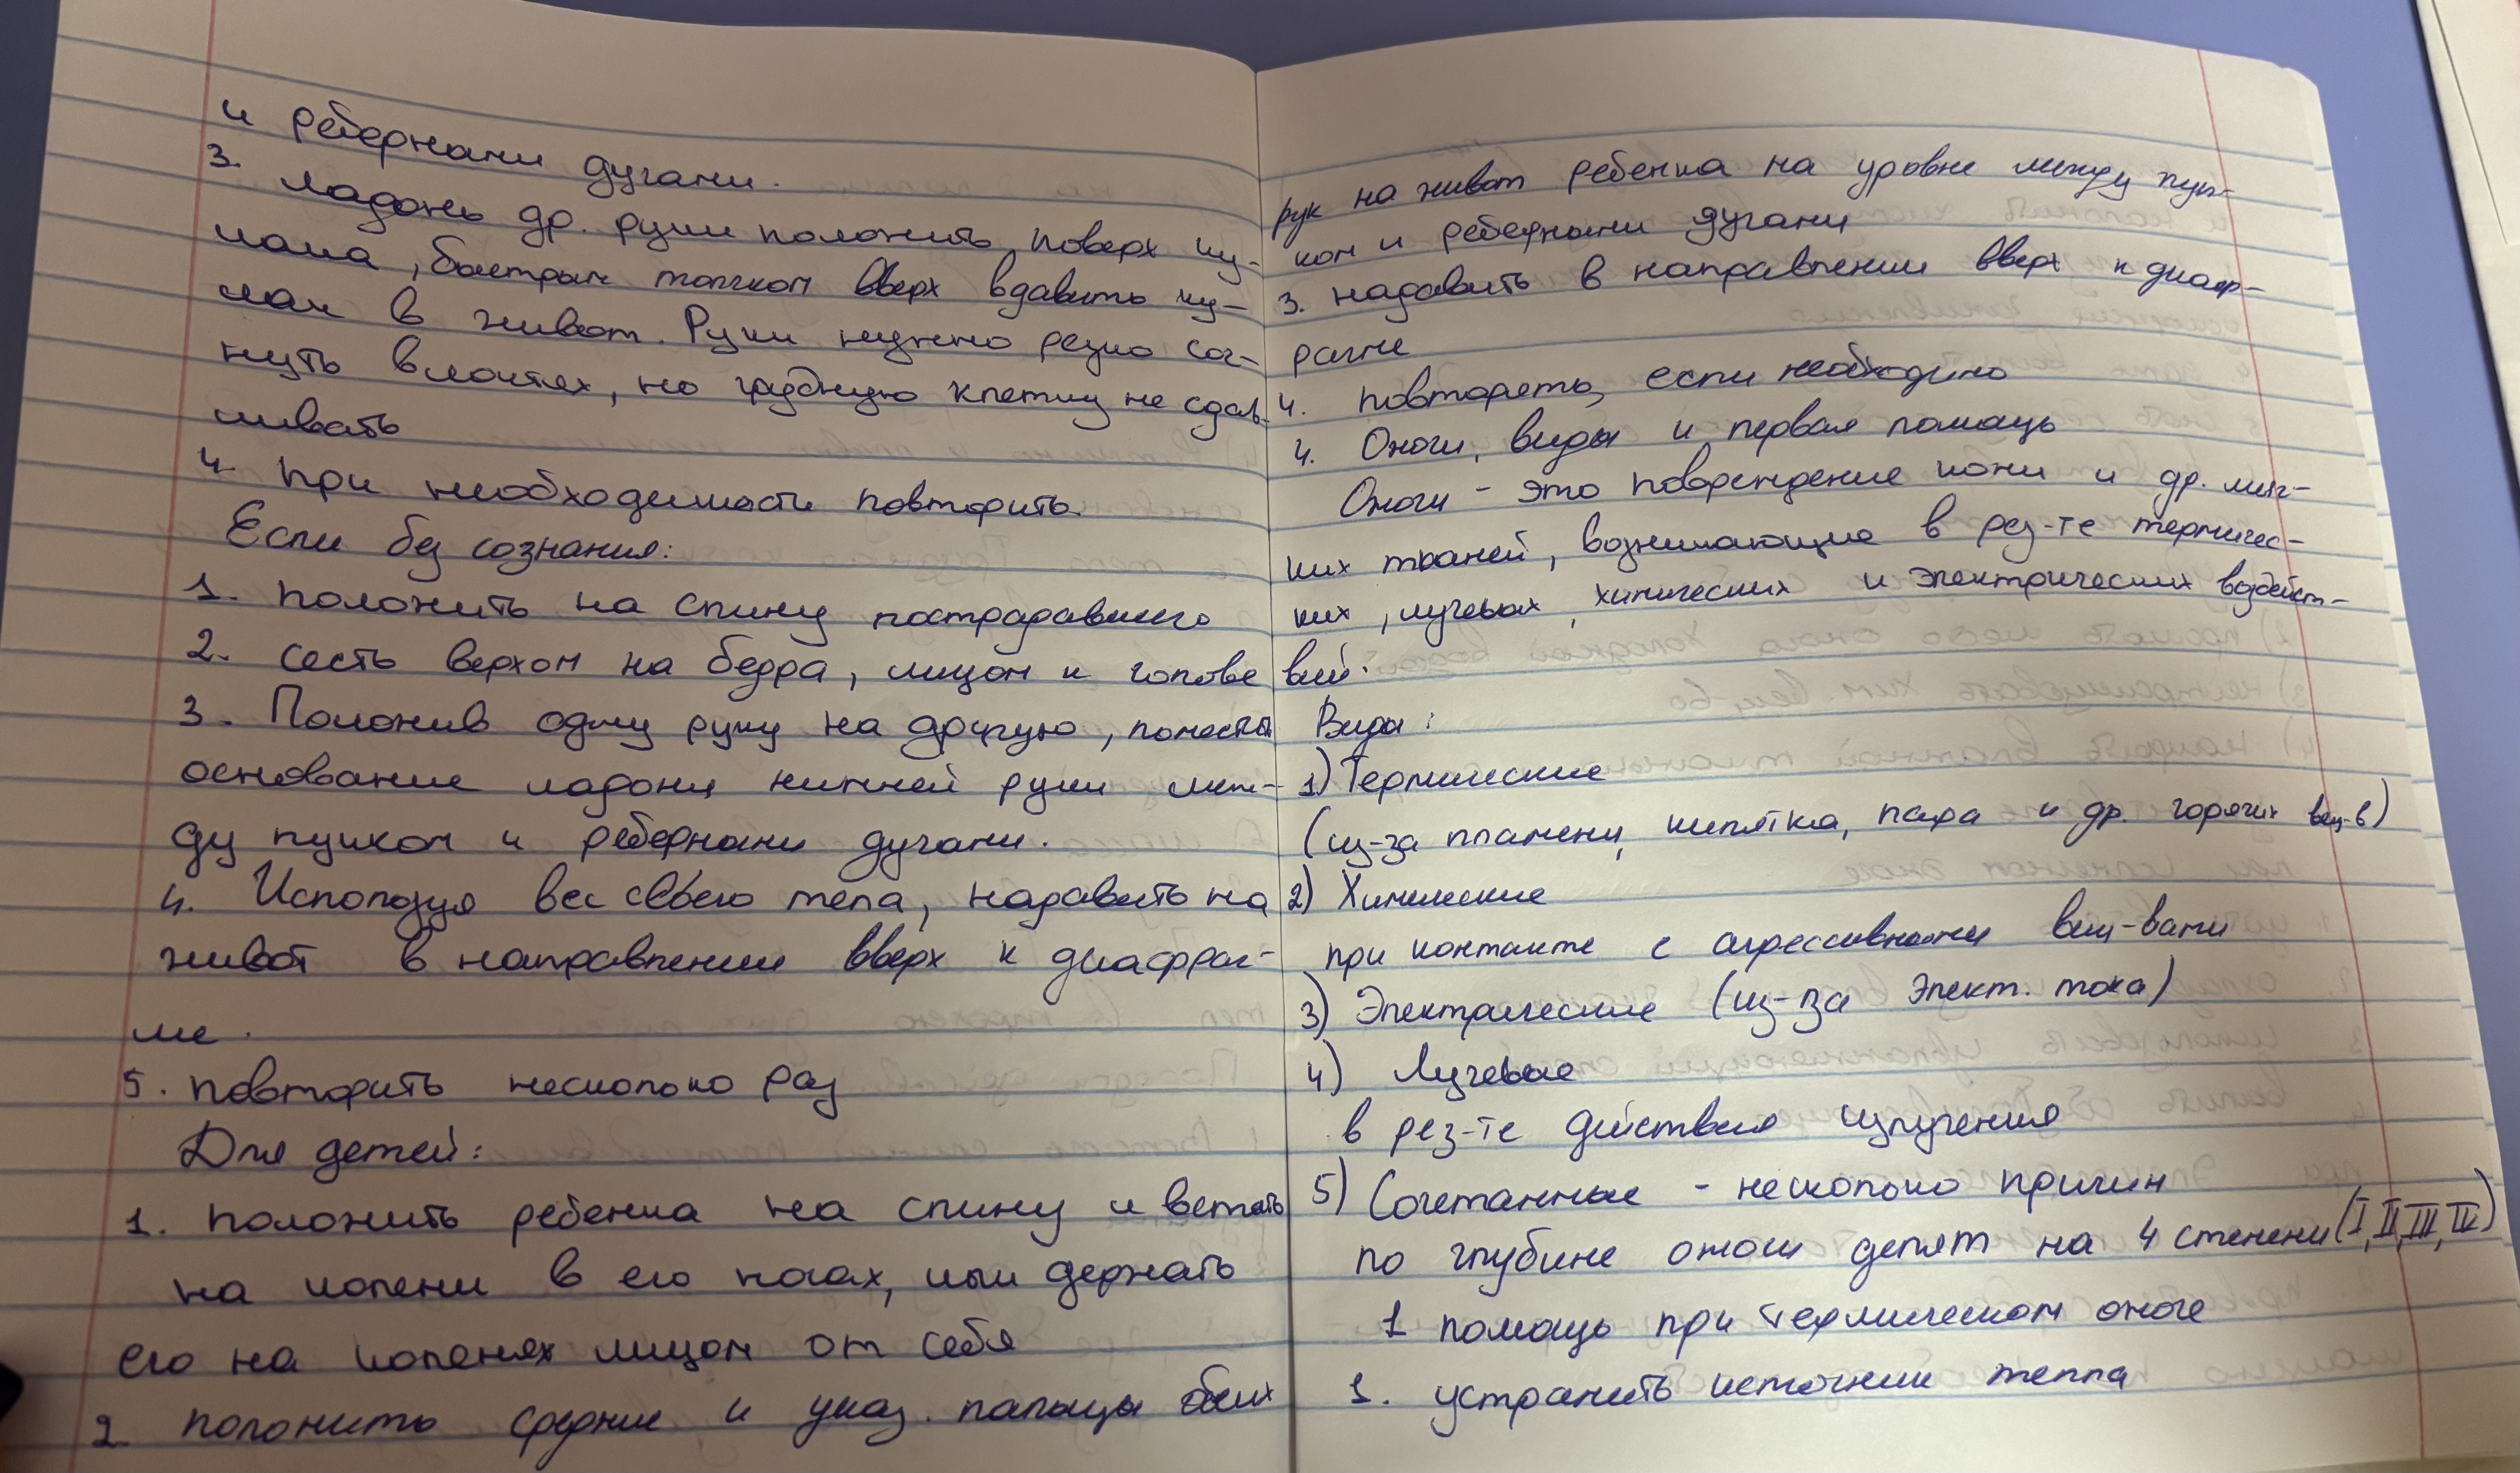 и реберными дугами.
3. ладонь др. руки положить поверх ку-
лака, быстрым толчком вверх вдавить ку-
лак в живот. Руки нужно резко сог-
нуть в локтях, но грудную клетку не сдав-
ливать
4. При необходимости повторить.
Если без сознания:
1. положить на спину пострадавшего
2. сесть верхом на бедра, лицом к голове
3. Положив одну руку на другую, поместить
основание ладони нижней руки меж-
ду пупком и реберными дугами.
4. Используя вес своего тела, надавить на
живот в направлении вверх к диафраг-
ме.
5. повторить несколько раз
Для детей:
1. положить ребенка на спину и встать
на колени в его ногах, или держать
его на коленях лицом от себя
2 положить средние и указ. пальцы обеих
рук на живот ребенка на уровне между пуп-
ком и реберными дугами
3. надавить в направлении вверх к диаф-
рагме
4. повтореть, если необходимо
4. Ожоги, виды и первая помощь
Ожоги - это повреждение кожи и др. мяг-
ких тканей, возникающие в рез-те термичес-
ких, лучевых, химических и электрических воздейст-
вий.
Виды:
1) Термические
(из-за пламени, кипятка, пара и др. горячих вещ-в)
2) Химические
при контакте с агрессивными вещ-вами
3) Электрические (из-за элект. тока)
4) Лучевые
в рез-те действия излучения
5) Сочетанные - несколько причин
по глубине ожоги делят на 4 степени (I, II, III, IV)
1 помощь при термическом ожоге
1. устранить источник тепла